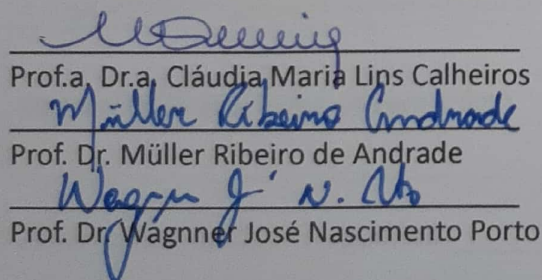 Prof.a. Dr.a. Cláudia Maria Lins Calheiros
Müller Ribeiro Andrade
Prof. Dr. Müller Ribeiro de Andrade
Wagner J. N.
Prof. Dr. Wagnner José Nascimento Porto